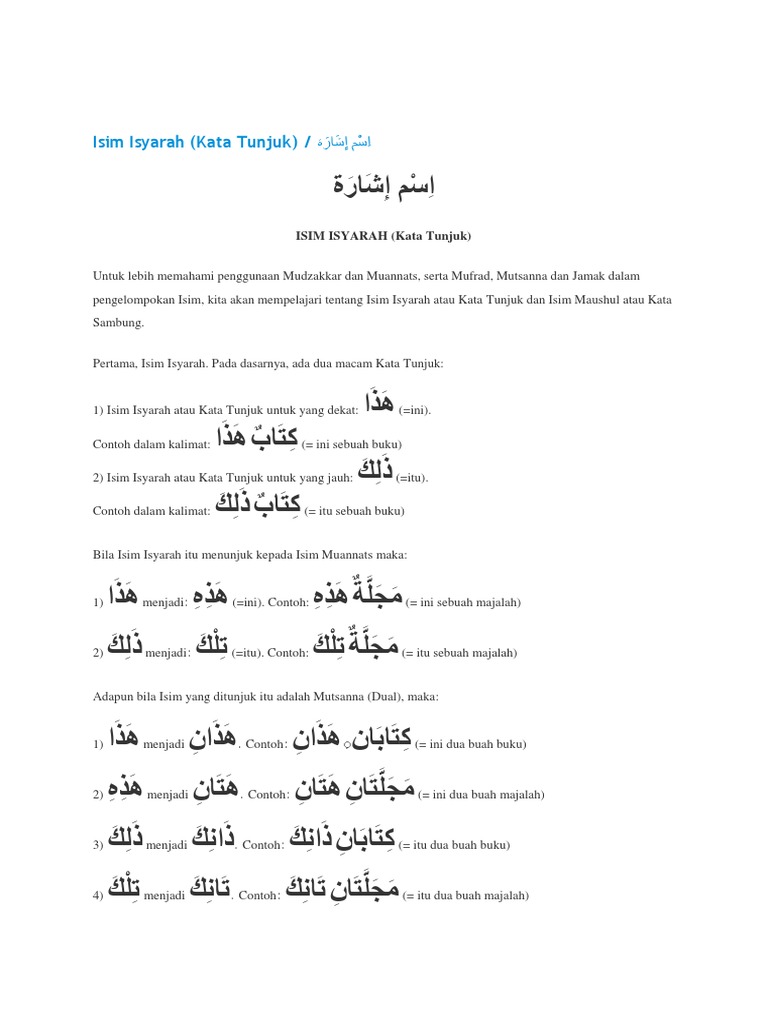 Isim Isyarah (Kata Tunjuk) / اِسْم إِشَارَة
اِسْم إِشَارَة
ISIM ISYARAH (Kata Tunjuk)
Untuk lebih memahami penggunaan Mudzakkar dan Muannats, serta Mufrad, Mutsanna dan Jamak dalam
pengelompokan Isim, kita akan mempelajari tentang Isim Isyarah atau Kata Tunjuk dan Isim Maushul atau Kata
Sambung.
Pertama, Isim Isyarah. Pada dasarnya, ada dua macam Kata Tunjuk:
1) Isim Isyarah atau Kata Tunjuk untuk yang dekat: هَذَا (=ini).
Contoh dalam kalimat: كِتَابٌ هَذَا (= ini sebuah buku)
2) Isim Isyarah atau Kata Tunjuk untuk yang jauh: ذَلِكَ (=itu).
Contoh dalam kalimat: كِتَابٌ ذَلِكَ (= itu sebuah buku)
Bila Isim Isyarah itu menunjuk kepada Isim Muannats maka:
1) هَذَا menjadi: هَذِهِ (=ini). Contoh: مَجَلَّةٌ هَذِهِ (= ini sebuah majalah)
2) ذَلِكَ menjadi: تِلْكَ (=itu). Contoh: مَجَلَّةٌ تِلْكَ (= itu sebuah majalah)
Adapun bila Isim yang ditunjuk itu adalah Mutsanna (Dual), maka:
1) هَذَا menjadi هَذَانِ. Contoh: كِتَابَان ِ هَذَانِ (= ini dua buah buku)
2) هَذِهِ menjadi هَتَانِ. Contoh: مَجَلَّتَانِ هَتَانِ (= ini dua buah majalah)
3) ذَلِكَ menjadi ذَانِكَ. Contoh: كِتَابَانِ ذَانِكَ (= itu dua buah buku)
4) تِلْكَ menjadi تَانِكَ. Contoh: مَجَلَّتَانِ تَانِكَ (= itu dua buah majalah)